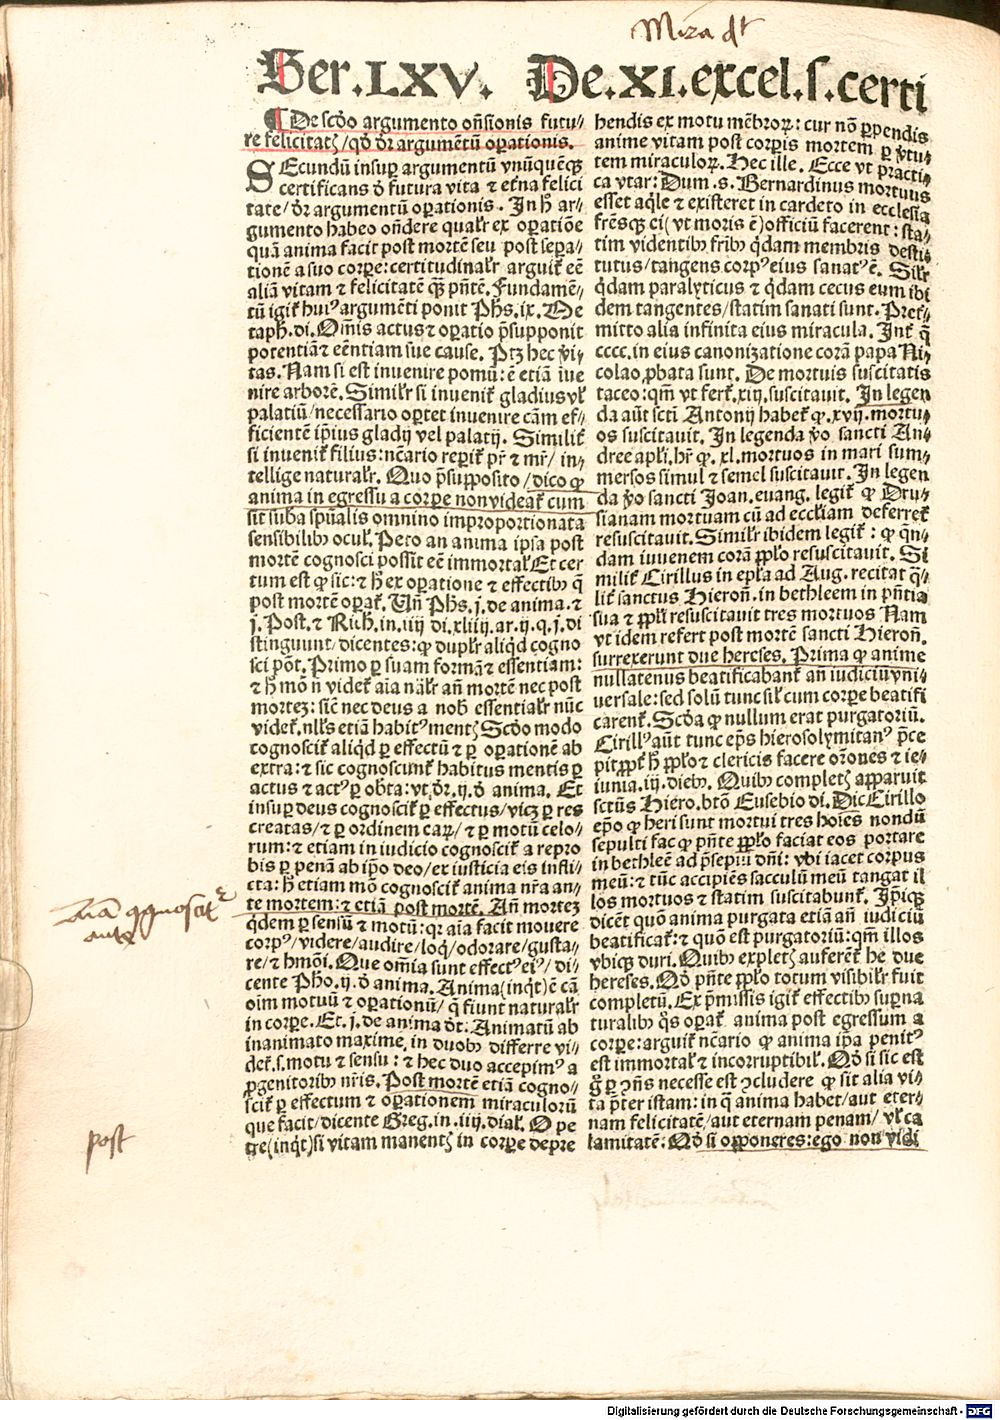 Ser.LXV. De.XI.excel.s.certi
¶ De scdo argumento oñsionis futu⸗
re felicitatꝭ/qđ dr̄ argumētū oꝑationis.
SEcundū insuꝑ argumentū vnūquēqꝫ
certificans đ futura vita ⁊ etṡna felici
tate/đr argumentū oꝑationis. In ħ ar⸗
gumento habeo oñdere qualr̄ ex oꝑatiōe
quā anima facit post mortē seu post seꝑa⸗
tionē a suo corꝑe:certitudinalr̄ arguit̄ eē
aliā vitam ⁊ felicitatē qꝫ pñtē. Fundamē⸗
tū igit̄ huiꝰ argumēti ponit Phs.ix. Me
taph.di. Om̄is actus ⁊ oꝑatio p̄supponit
potentiā ⁊ eēntiam sue cause. Ptꝫ hec v̓i⸗
tas. Nam si est inuenire pomū:ē etiā iue
nire arborē. Similr̄ si inuenit̄ gladius vl̓
palatiū/necessario oꝑtet inuenire cām ef⸗
ficientē ip̄ius gladij vel palatij. Similit̄
si inuenit̄ filius:ncārio reꝑit̄ pr̄ ⁊ mr̄/ in⸗
tellige naturalr̄. Quo p̄supposito/dico ꝙ
anima in egressu a corꝑe non videat̄ cum
sit suba spūalis omnino improportionata
sensibilibꝰ ocul̓. Pero an anima ipsa post
mortē cognosci possit eē immortal̓ Et cer
tum est ꝙ sic: ⁊ ħ ex oꝑatione ⁊ effectibꝰ q̄
post mortē oꝑat̄. Vñ Phs.j.de anima.⁊
j.Post.⁊ Rich.in.iiij di.xliiij.ar.ij.q.j.di
stinguunt/dicentes:ꝙ duplr̄ aliqđ cogno
sci pōt. Primo ꝑ suam formā ⁊ essentiam:
⁊ ħ mō ñ videt̄ aīa nālr̄ añ mortē nec post
mortez:sic̄ nec deus a nob̄ essentialr̄ nūc
videt̄.nll̓s etiā habitꝰ mentꝭ Scđo modo
cognoscit̄ aliqđ ꝑ effectū ⁊ ꝑ oꝑationē ab
extra:⁊ sic cognoscunt̄ habitus mentis ꝑ
actus ⁊ actꝰ ꝑ ob̄ta:vt đr.ij.đ anima. Et
insuꝑ deus cognoscit̄ ꝑ effectus/vicꝫ ꝑ res
creatas/⁊ ꝑ ordinem caꝝ/⁊ ꝑ motū celo⸗
rum:⁊ etiam in iudicio cognoscit̄ a repro
bis ꝑ penā ab ip̄o deo/ex iusticia eis infli⸗
cta:ħ etiam mō cognoscit̄ anima nr̄a an⸗
te mortem:⁊ etiā post mortē. Añ mortez
qđem ꝑ sensū ⁊ motū:qꝛ aīa facit mouere
corpꝰ/videre/audire/loq̄/odorare/gusta⸗
re/⁊ hm̄oi. Que om̄ia sunt effectꝰ eiꝰ/ di⸗
cente Pho.ij.đ anima. Anima(inqͥt)ē cā
oīm motuū ⁊ oꝑationū/ q̄ fiunt naturalr̄
in corꝑe. Et.j.de anima đt: Animatū ab
inanimato maxime in duobꝰ differre vi⸗
det̄.s.motu ⁊ sensu:⁊ hec duo accepimꝰ a
ꝓgenitoribꝰ nr̄is. Post mortē etiā cogno⸗
scit̄ ꝑ effectum ⁊ oꝑationem miraculorū
que facit/dicente Greg.in.iiij.dial̓. O pe
tre(inqͥt)si vitam manentꝭ in corꝑe depre
hendis ex motu mēbroꝝ: cur nō ꝑpendis
anime vitam post corꝑis mortem ꝑ v̓tu⸗
tem miraculoꝝ. Hec ille. Ecce vt practi⸗
ca vtar: Dum .s. Bernardinus mortuus
esset aql̓e ⁊ existeret in cardeto in ecclesia
fr̄esqꝫ ei(vt moris ē)officiū facerent:sta⸗
tim videntibꝰ fribꝰ qđam membris desti⸗
tutus/tangens corpꝰ eius sanatꝰ ē. Silr̄
qđam paralyticus ⁊ qđam cecus eum ibi
dem tangentes/statim sanati sunt. Pret⸗
mitto alia infinita eius miracula. Int̄ q̄
cccc.in eius canonizatione corā papa Ni⸗
colao ꝓbata sunt. De mortuis suscitatis
taceo:qm̄ vt fert̄.xiij.suscitauit. In legen
da aūt scti Antonij habet̄ ꝙ.xvij.mortu⸗
os suscitauit. In legenda v̓o sancti An⸗
dree apl̓i.hr̄ ꝙ.xl.mortuos in mari sum⸗
mersos simul ⁊ semel suscitauit. In legen
da v̓o sancti Joan.euang. legit̄ ꝙ Dru⸗
sianam mortuam cū ad eccl̓iam deferret̄
resuscitauit. Similr̄ ibidem legit̄:ꝙ qn̄⸗
dam iuuenem corā ppl̓o resuscitauit. Si
milit̄ Cirillus in ep̄la ad Aug. recitat q̄⸗
lit̄ sanctus Hieroñ.in bethleem in pñtia
sua ⁊ ppl̓i resuscitauit tres mortuos Nam
vt idem refert post mortē sancti Hieroñ.
surrexerunt due hereses. Prima ꝙ anime
nullatenus beatificabant̄ añ iudiciū vni⸗
uersale:sed solū tunc sil̓ cum corꝑe beatifi
carent̄. Scđa ꝙ nullum erat purgatoriū.
Cirillꝰ aūt tunc ep̄s hierosolymitanꝰ p̄ce
pit ppl̓t ħ ppl̓o ⁊ clericis facere or̄ones ⁊ ie⸗
iunia.iij.diebꝰ. Quibꝰ completꝭ apparuit
sctūs Hiero.btō Eusebio di. Dic Cirillo
ep̄o ꝙ heri sunt mortui tres hoīes nondū
sepulti fac ꝙ pñte ppl̓o faciat eos portare
in bethleē ad p̄sepiū dñi: vbi iacet corpus
meū:⁊ tūc accipiēs sacculū meū tangat il
los mortuos ⁊ statim suscitabunt̄. Ip̄iqꝫ
dicēt quō anima purgata etiā añ iudiciū
beatificat̄:⁊ quō est purgatoriū:qm̄ illos
vbicqꝫ duri. Quibꝰ expletꝭ auferēt̄ he due
hereses. Qđ pñte ppl̓o totum visibilr̄ fuit
completū. Ex p̄missis igit̄ effectibꝰ suꝑna
turalibꝰ qͦs oꝑat̄ anima post egressum a
corꝑe:arguit̄ ncārio ꝙ anima ip̄a penitꝰ
est immortal̓ ⁊ incorruptibil̓. Qđ si sic est
gͦ ꝑ ꝯñs necesse est ꝯcludere ꝙ sit alia vi⸗
ta p̄ter istam:in q̄ anima habet/aut eter⸗
nam felicitatē/aut eternam penam/ vl̓ ca
lamitatē. Qđ si opponeres:ego non vidi
post
Digitalisierung gefördert durch die Deutsche Forschungsgemeinschaft - DFG